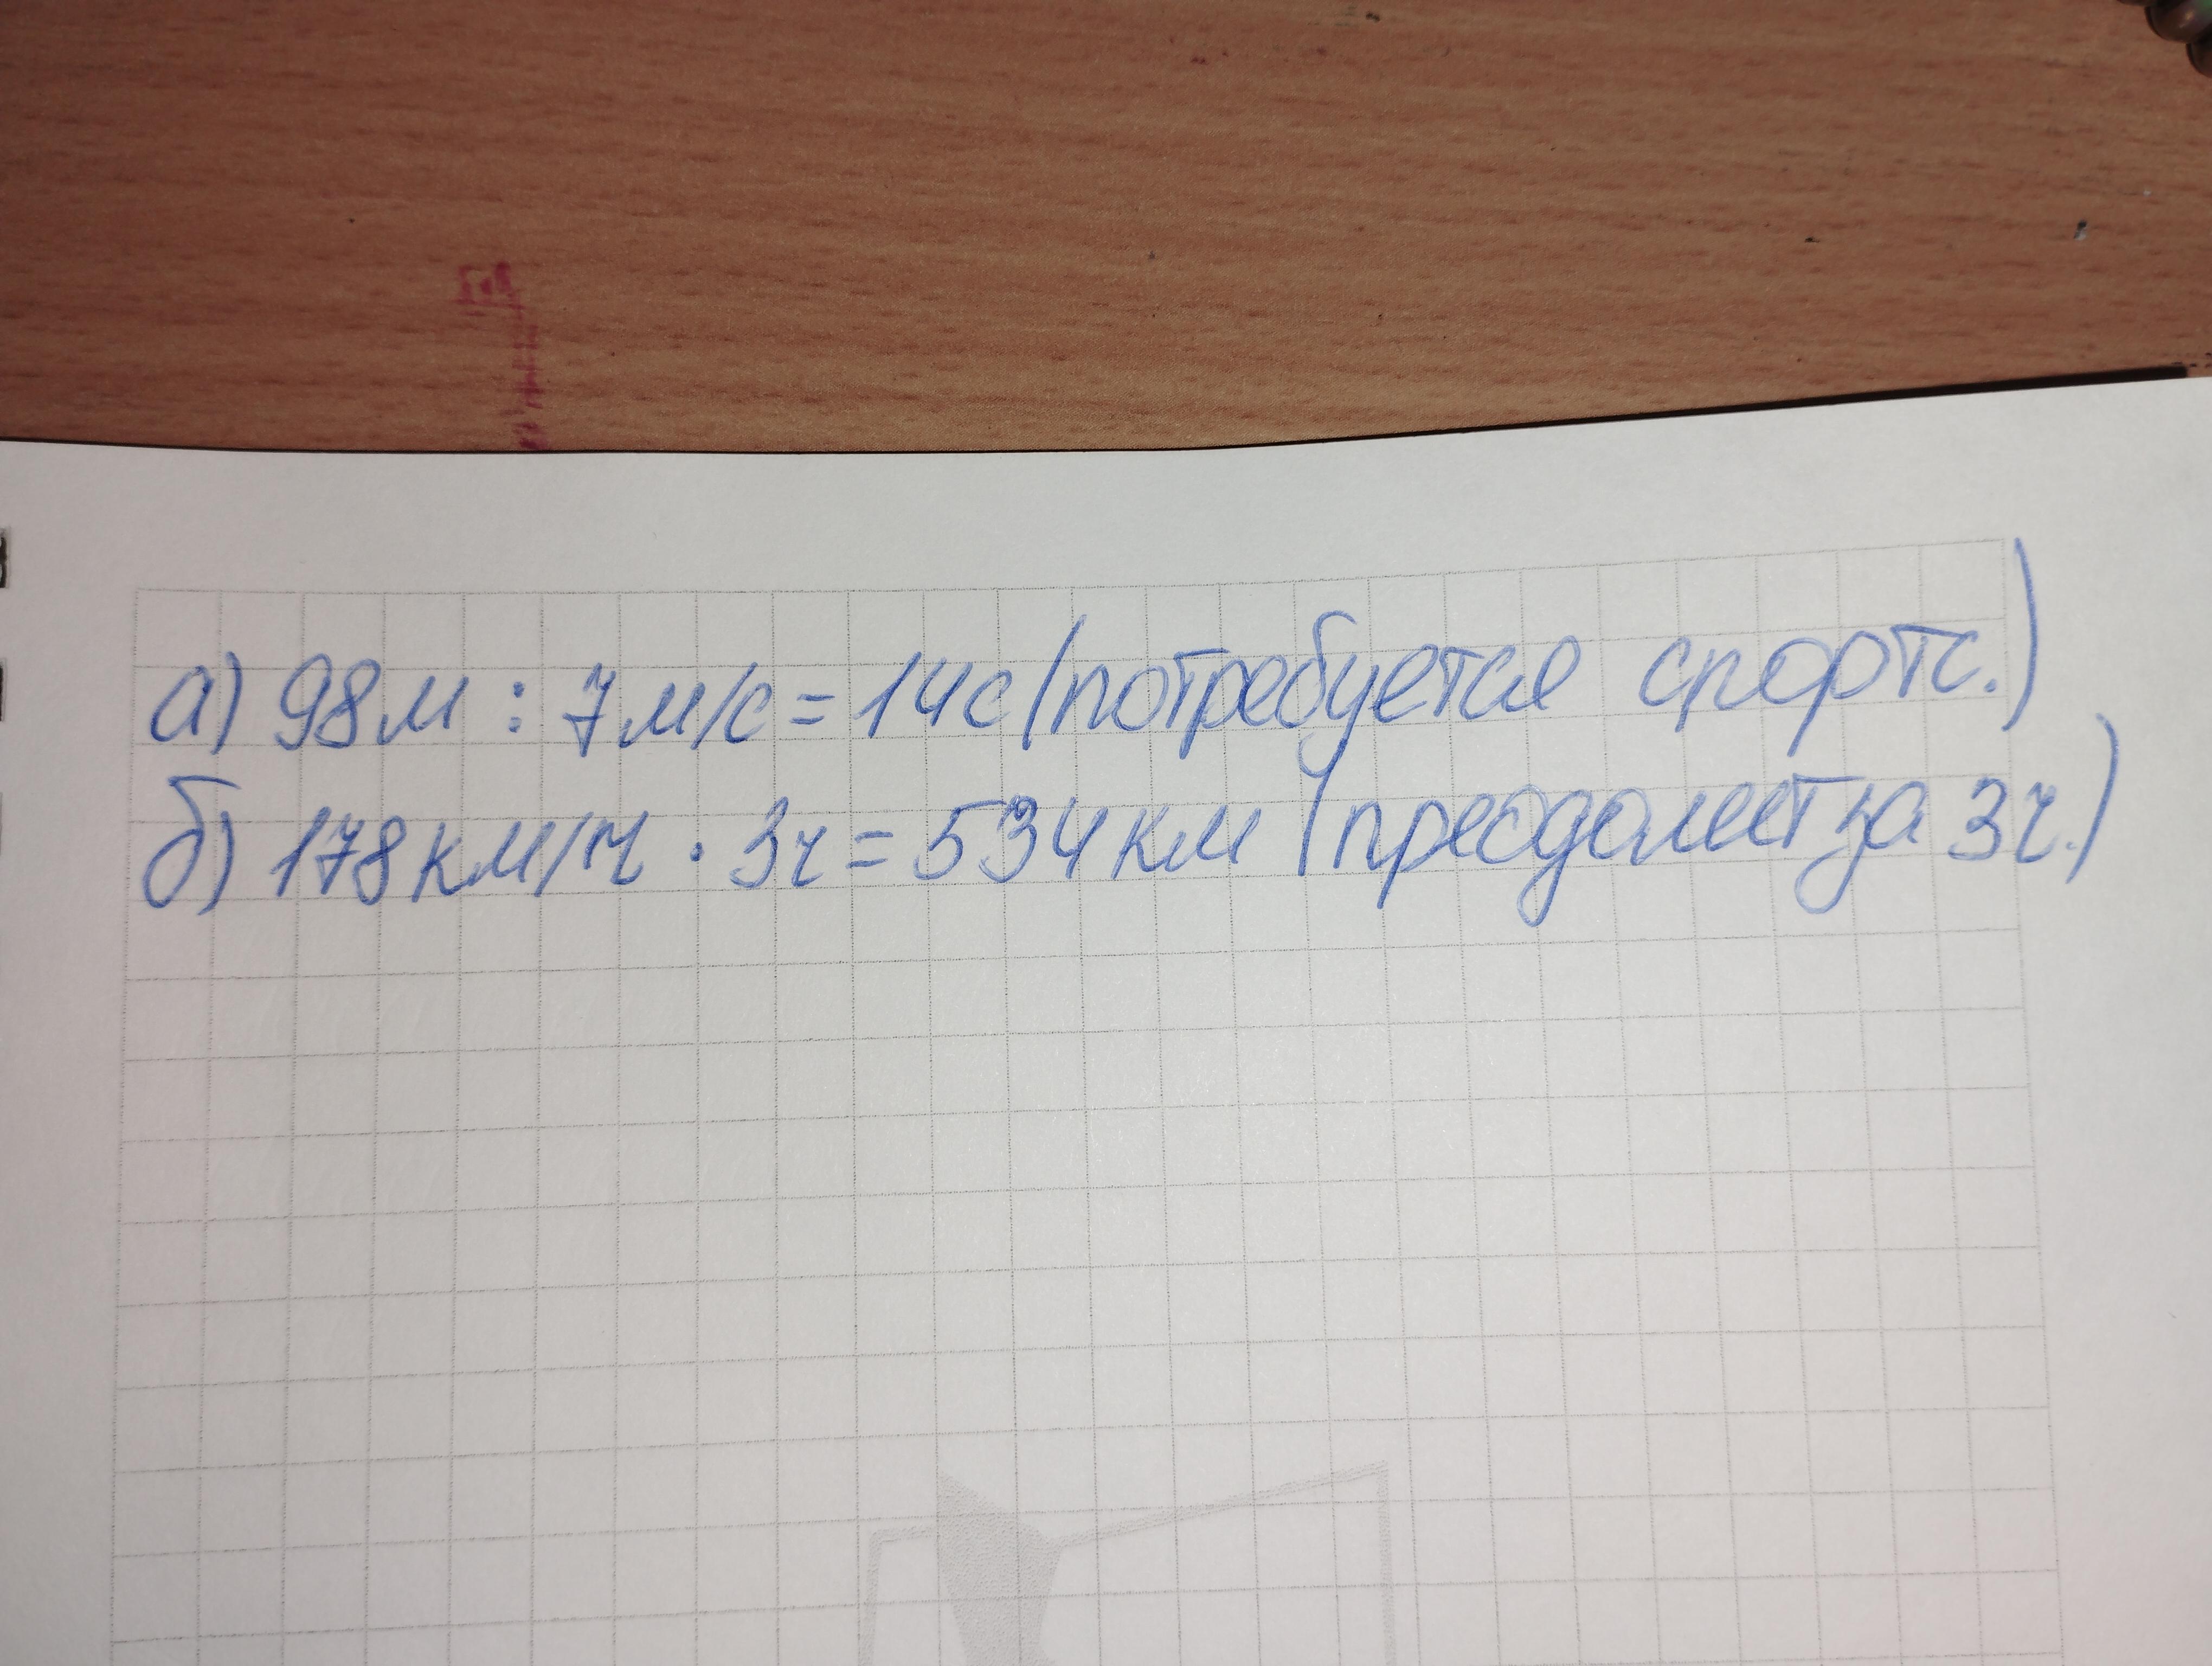 а) 98м : 7м/с = 14с (потребуется спортс.)
б) 178км/ч · 3ч = 534км (преодолеет за 3ч.)